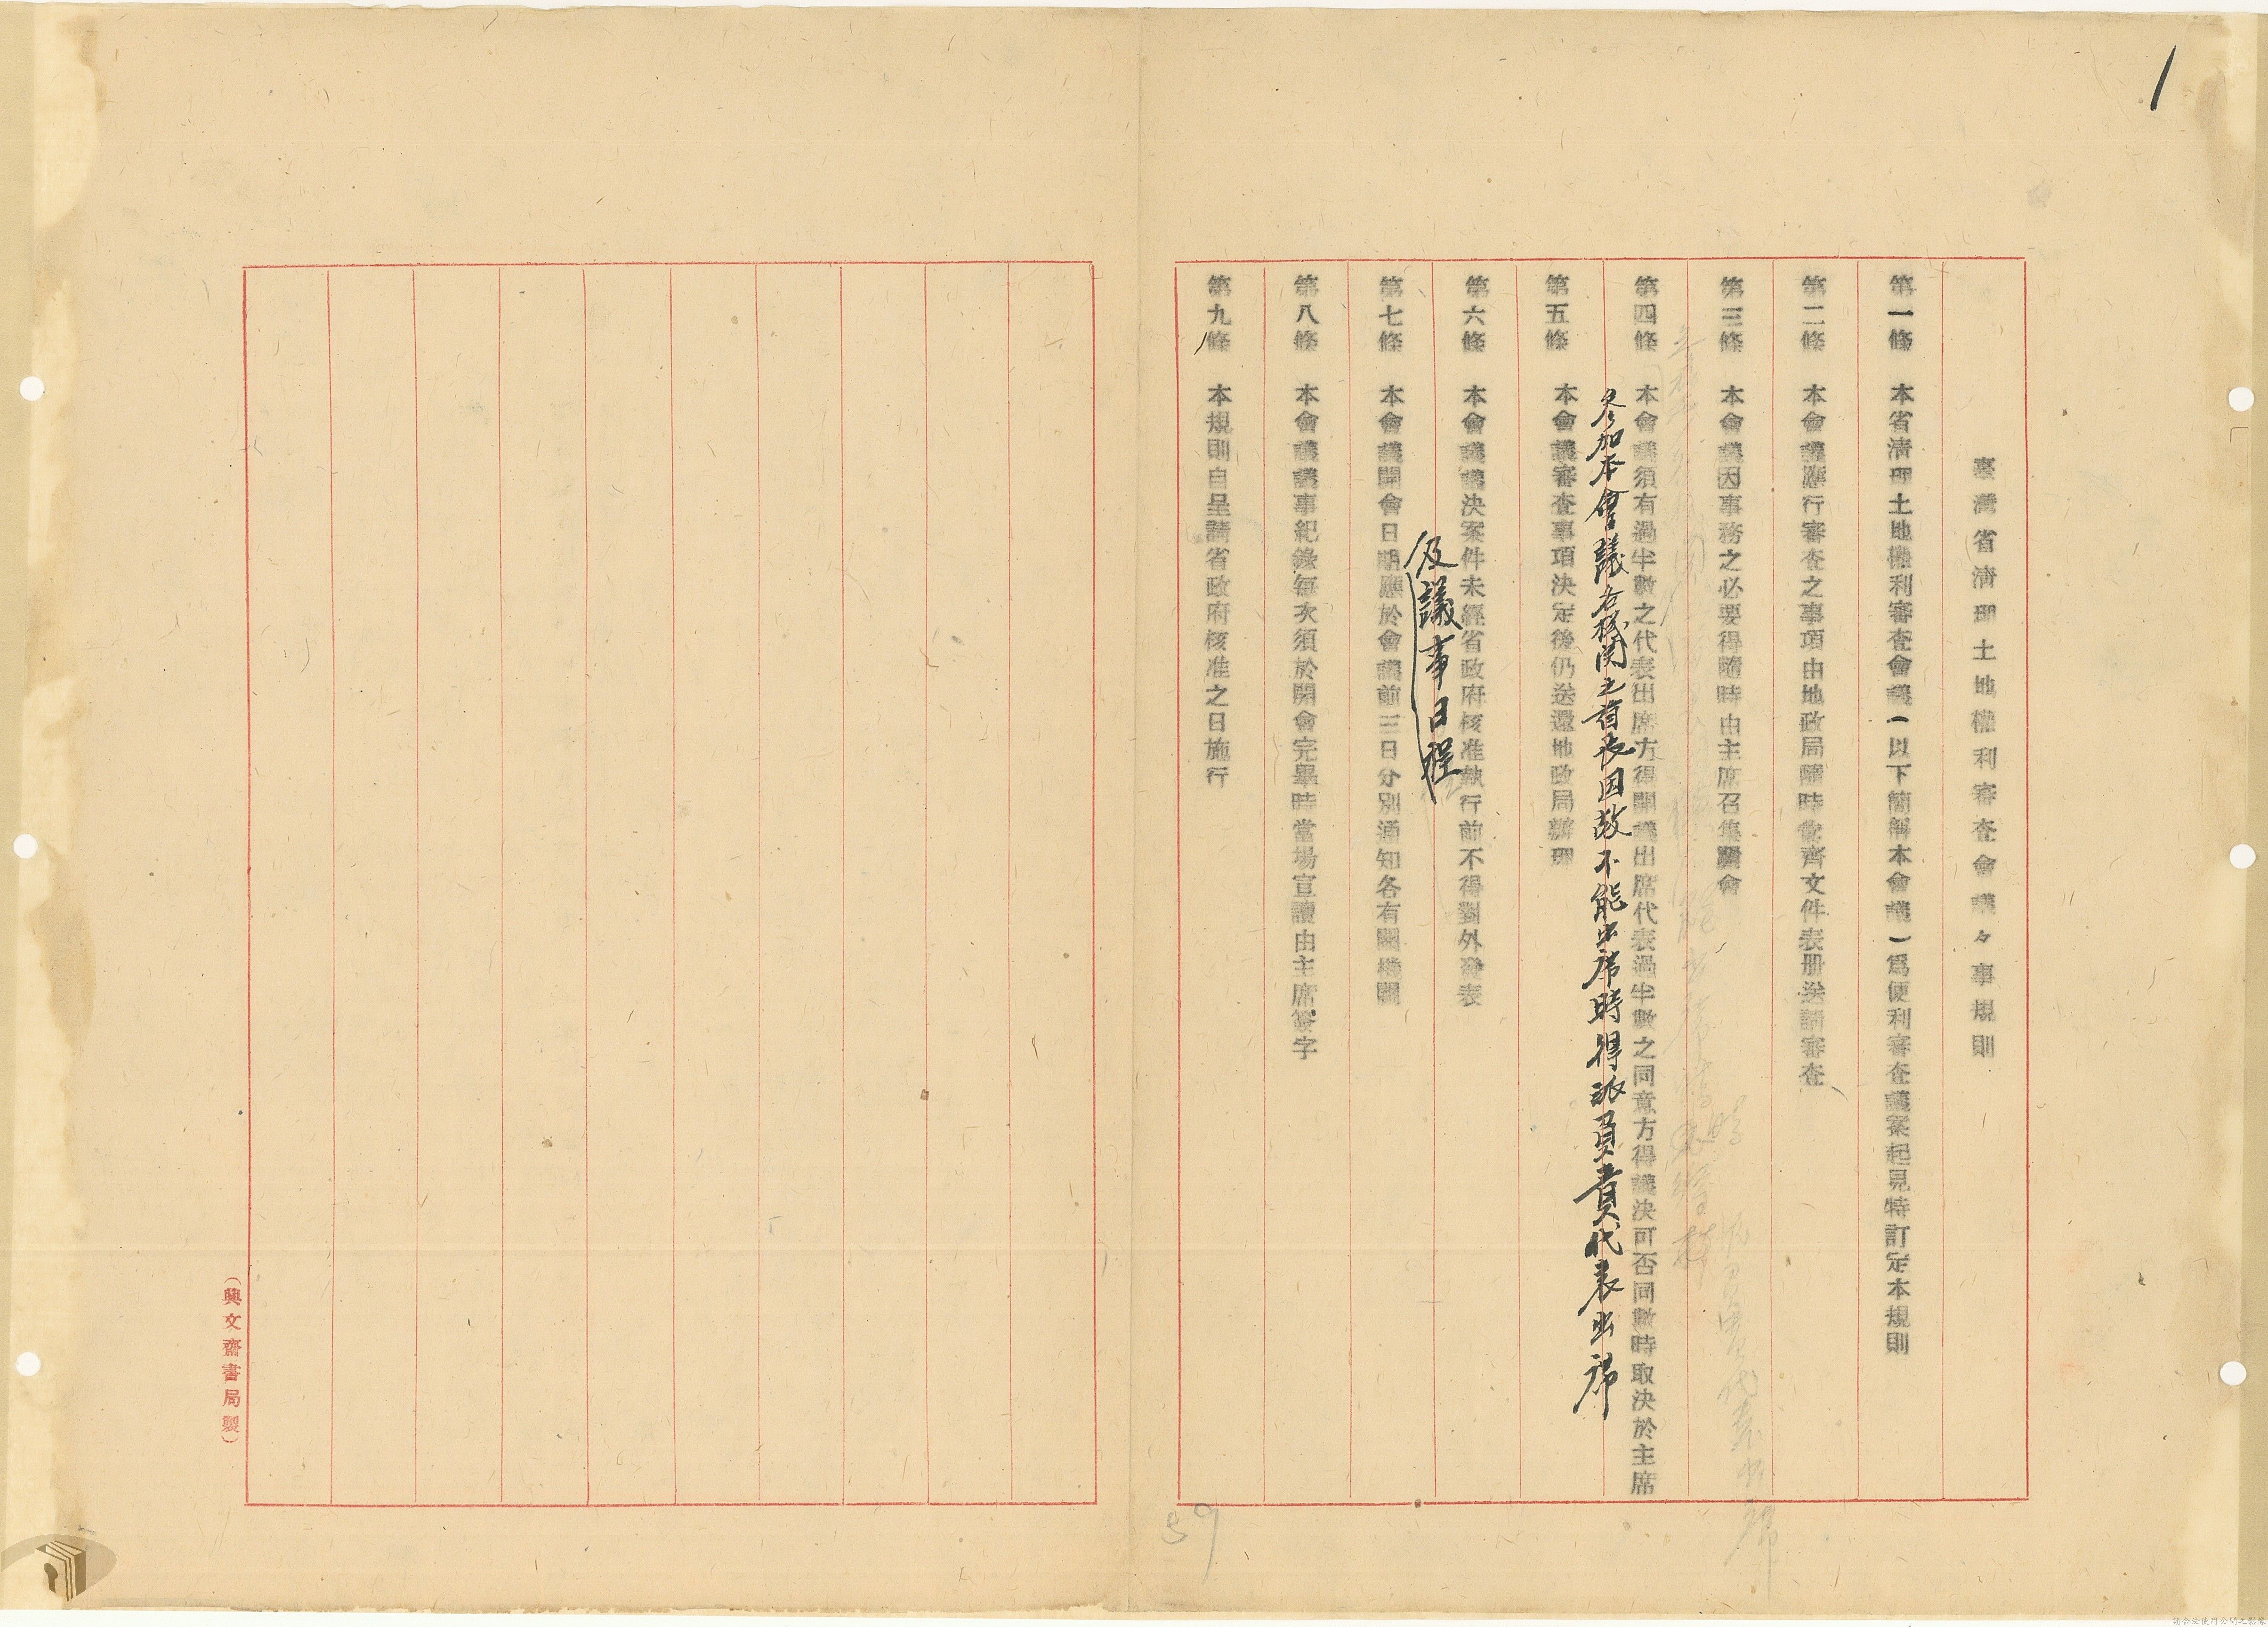 1
臺灣省清理土地權利審查會議々事規則
第一條 本省清理土地權利審查會議(以下簡稱本會議)爲便利審查議案起見特訂定本規則
第二條 本會議應行審查之事項由地政局隨時彙齊文件表册送請審查
第三條 本會議因事務之必要得隨時由主席召集開會
第四條 本會議須有過半數之代表出席方得開議出席代表過半數之同意方得議決可否同數時取決於主席
參加本會議各機関之首長因故不能出席時得派員負責代表出席
第五條 本會議審查事項決定後仍送還地政局辦理
第六條 本會議議決案件未經省政府核准執行前不得對外發表
及議事日程
第七條 本會議開會日期應於會議前三日分別通知各有關機關
第八條 本會議議事紀錄每次須於開會完畢時當場宣讀由主席簽字
第九條 本規則自呈請省政府核准之日施行
59
(興文齋書局製)
請合法使用公開之影像